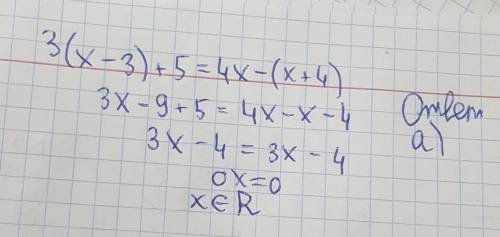 3(x-3)+5=4x-(x+4)
3x-9+5=4x-x-4
3x-4=3x-4
0x=0
x∈R
Ответ
а)